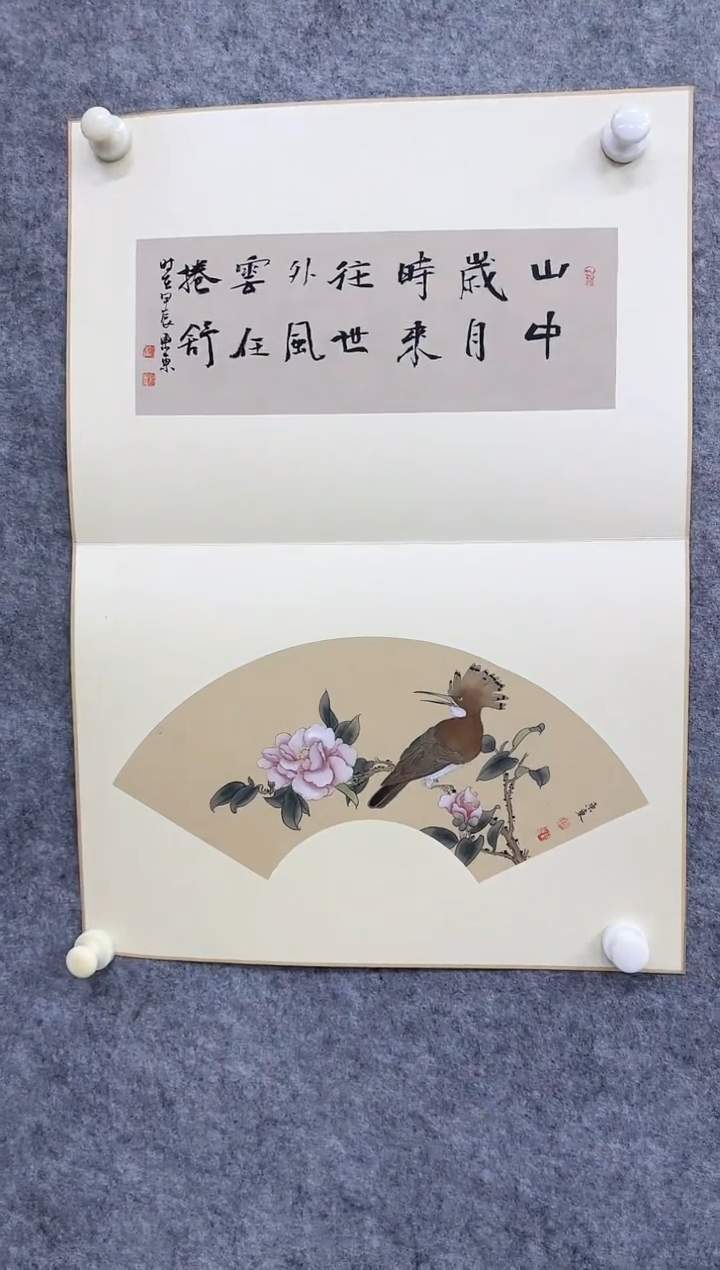 山中
歲月
時來
往世
外風
雲任
捲舒
時在甲辰